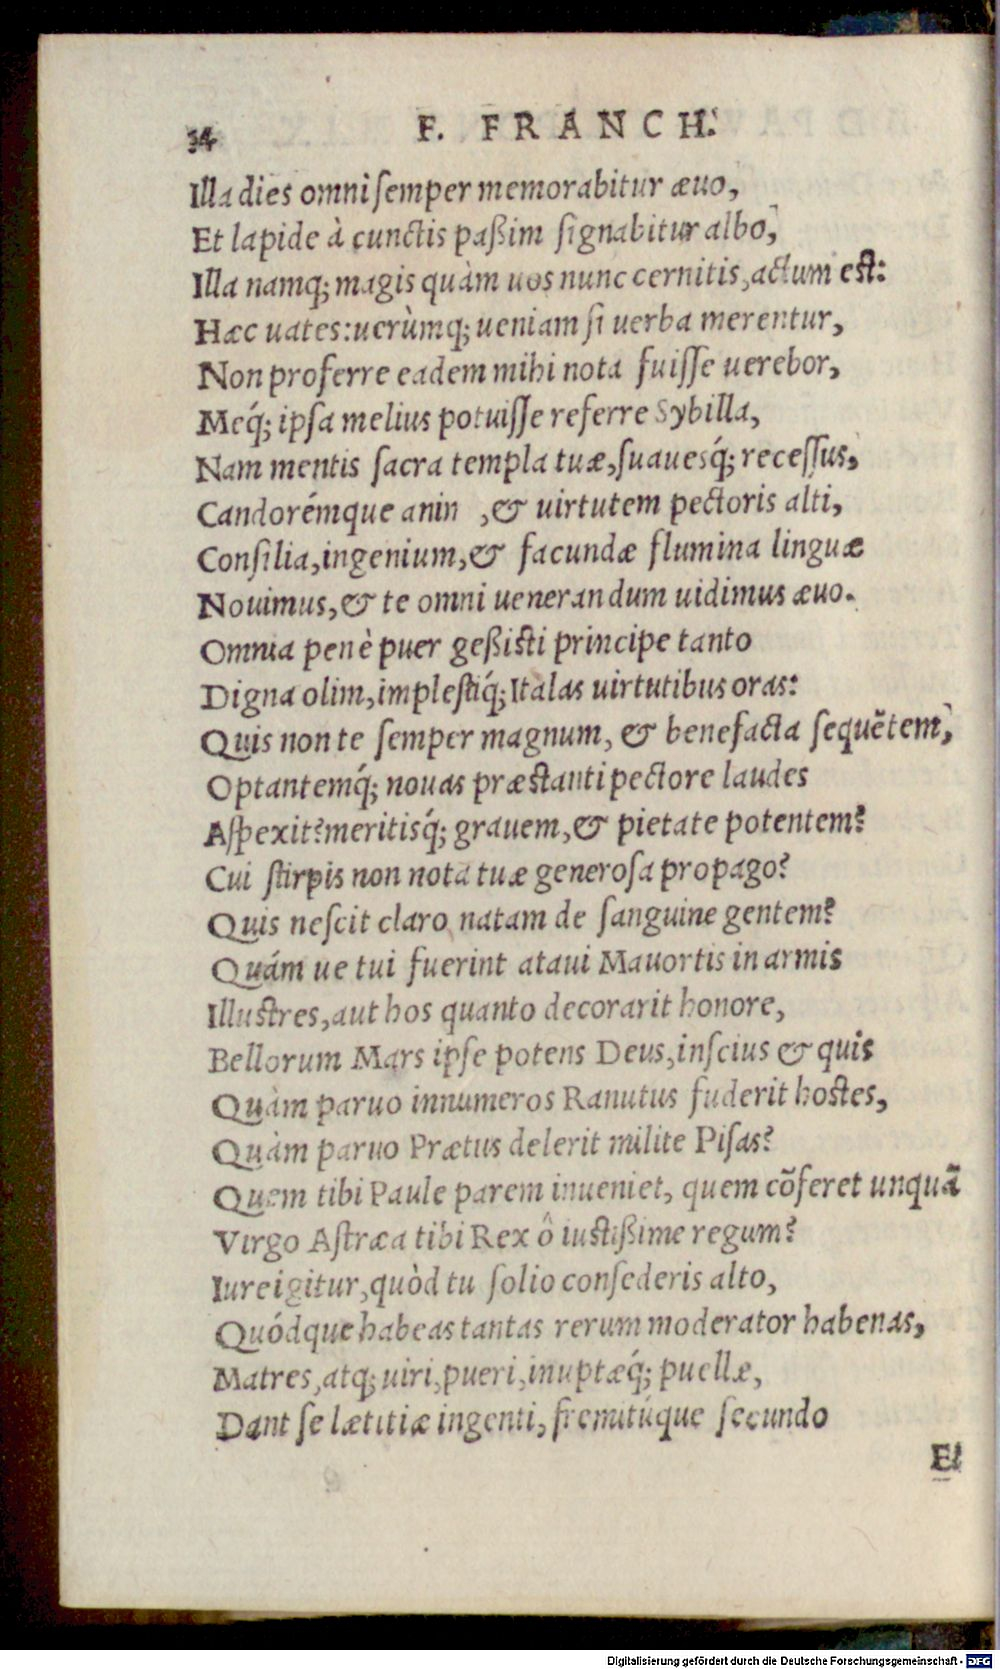 34 F. FRANCH.
Illa dies omni semper memorabitur æuo,
Et lapide à cunctis paßim signabitur albo,
Illa namq; magis quàm uos nunc cernitis, actum est:
Hæc uates: uerùmq; ueniam si uerba merentur,
Non proferre eadem mihi nota fuisse uerebor,
Meq́; ipsa melius potuisse referre Sybilla,
Nam mentis sacra templa tuæ, suauesq́; recessus,
Candorémque anin , & uirtutem pectoris alti,
Consilia, ingenium, & facundæ flumina linguæ
Nouimus, & te omni uenerandum uidimus æuo.
Omnia penè puer geßisti principe tanto
Digna olim, implestiq́; Italas uirtutibus oras:
Quis non te semper magnum, & benefacta sequẽtem,
Optantemq́; nouas præstanti pectore laudes
Aspexit? meritisq́; grauem, & pietate potentem?
Cui stirpis non nota tuæ generosa propago?
Quis nescit claro natam de sanguine gentem?
Quám ue tui fuerint ataui Mauortis in armis
Illustres, aut hos quanto decorarit honore,
Bellorum Mars ipse potens Deus, inscius & quis
Quàm paruo innumeros Ranutus fuderit hostes,
Quàm paruo Prætus delerit milite Pisas?
Quem tibi Paule parem inueniet, quem cõferet unquã
Virgo Astræa tibi Rex ô iustißime regum?
Iure igitur, quòd tu solio consederis alto,
Quódque habeas tantas rerum moderator habenas,
Matres, atq; uiri, pueri, inuptæq́; puellæ,
Dant se lætitiæ ingenti, fremitúque secundo
Et
Digitalisierung gefördert durch die Deutsche Forschungsgemeinschaft - DFG